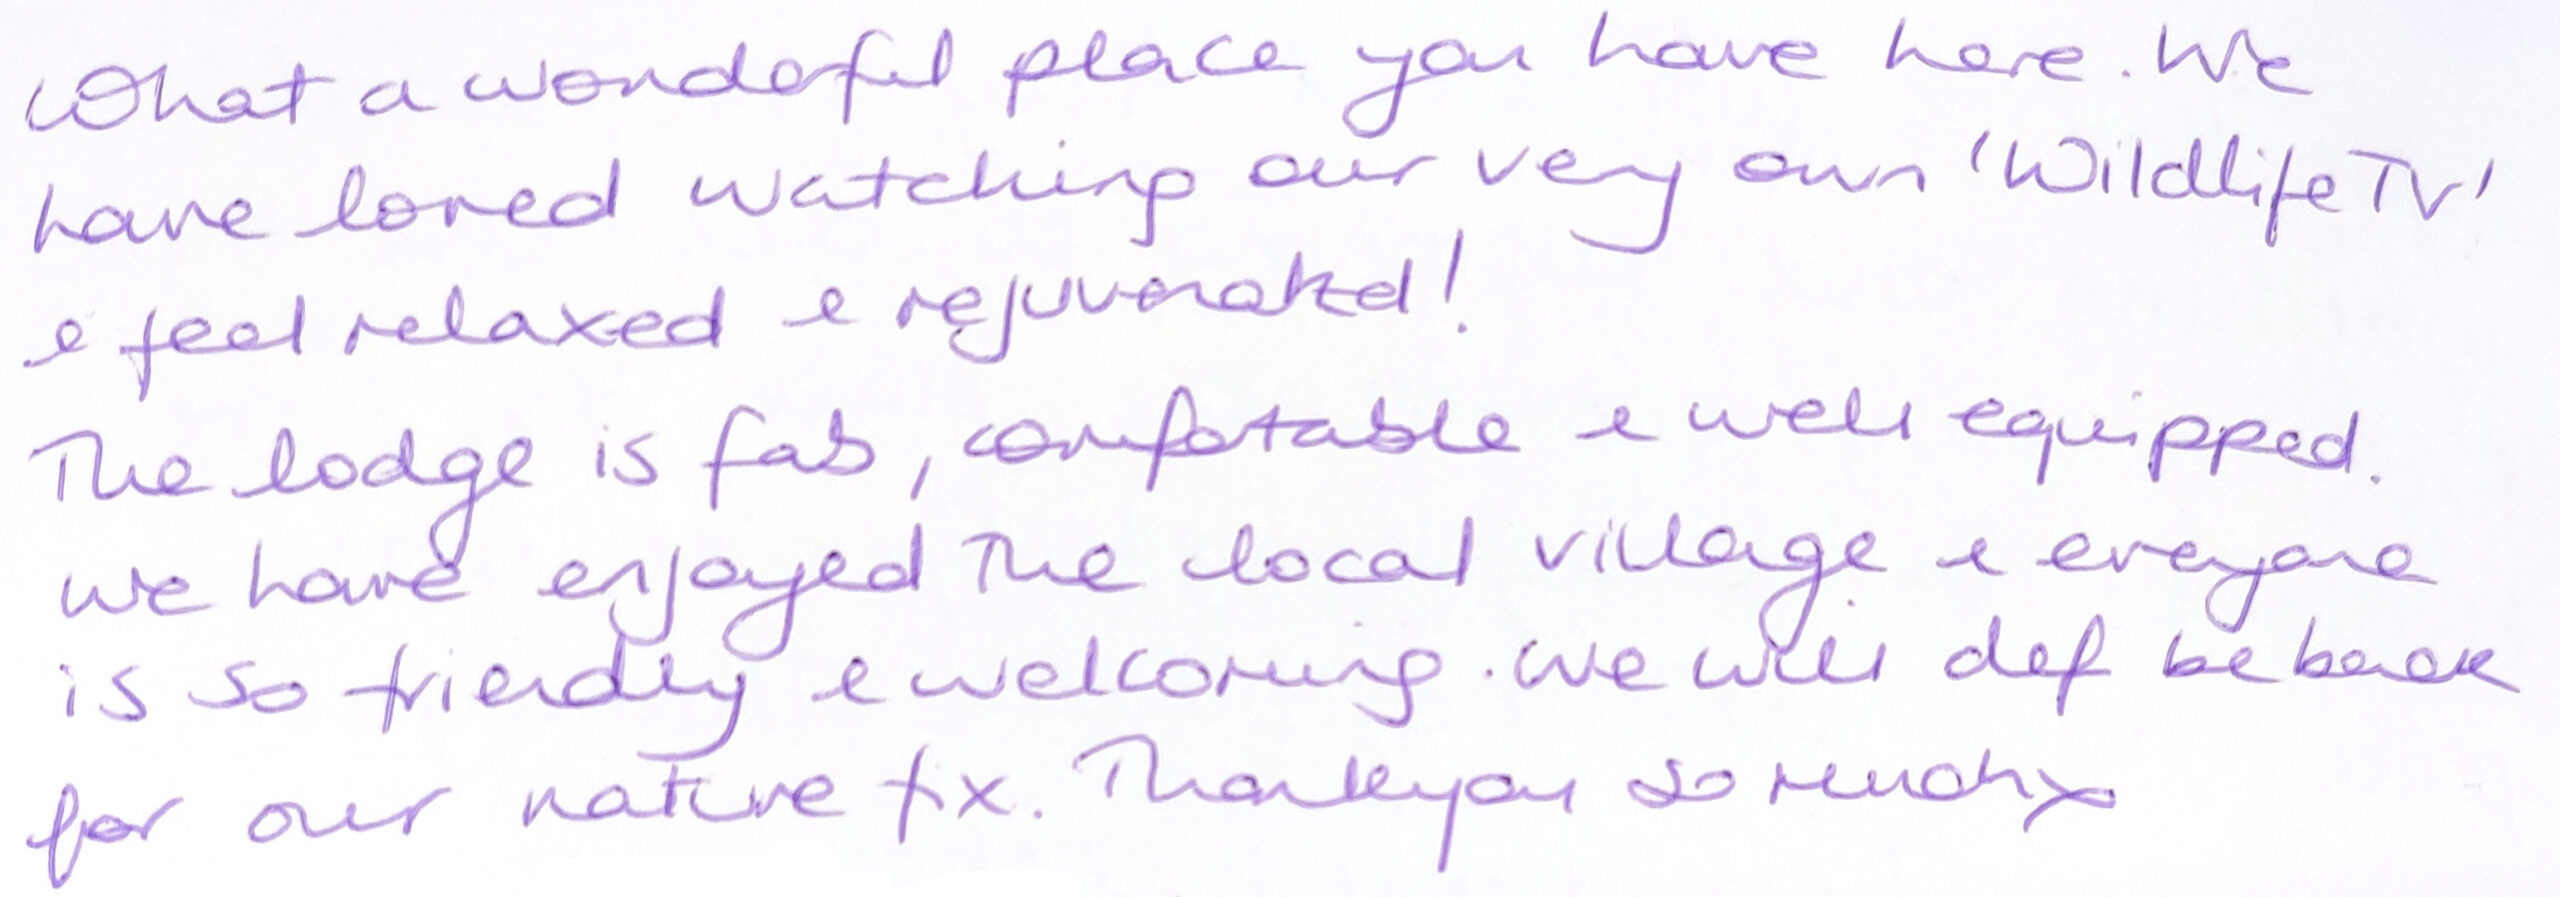 What a wonderful place you have here. We
have loved watching our very own 'Wildlife TV'
& feel relaxed & rejuvenated!
The lodge is fab, comfortable & well equipped.
We have enjoyed the local village & everyone
is so friendly & welcoming. We will def be back
for our nature fix. Thankyou so much x